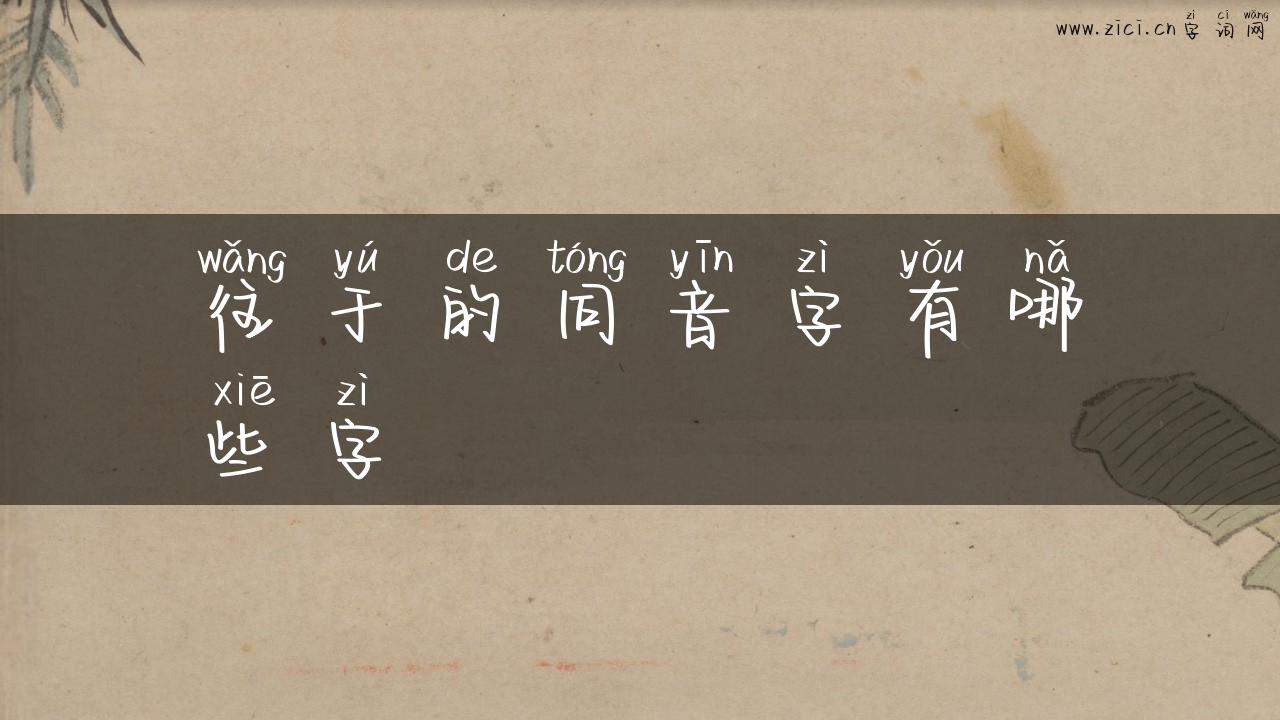 zì cí wǎng
www.zici.cn 字 词 网
wǎng yú de tóng yīn zì yǒu nǎ
往 于 的 同 音 字 有 哪
xiē zì
些 字